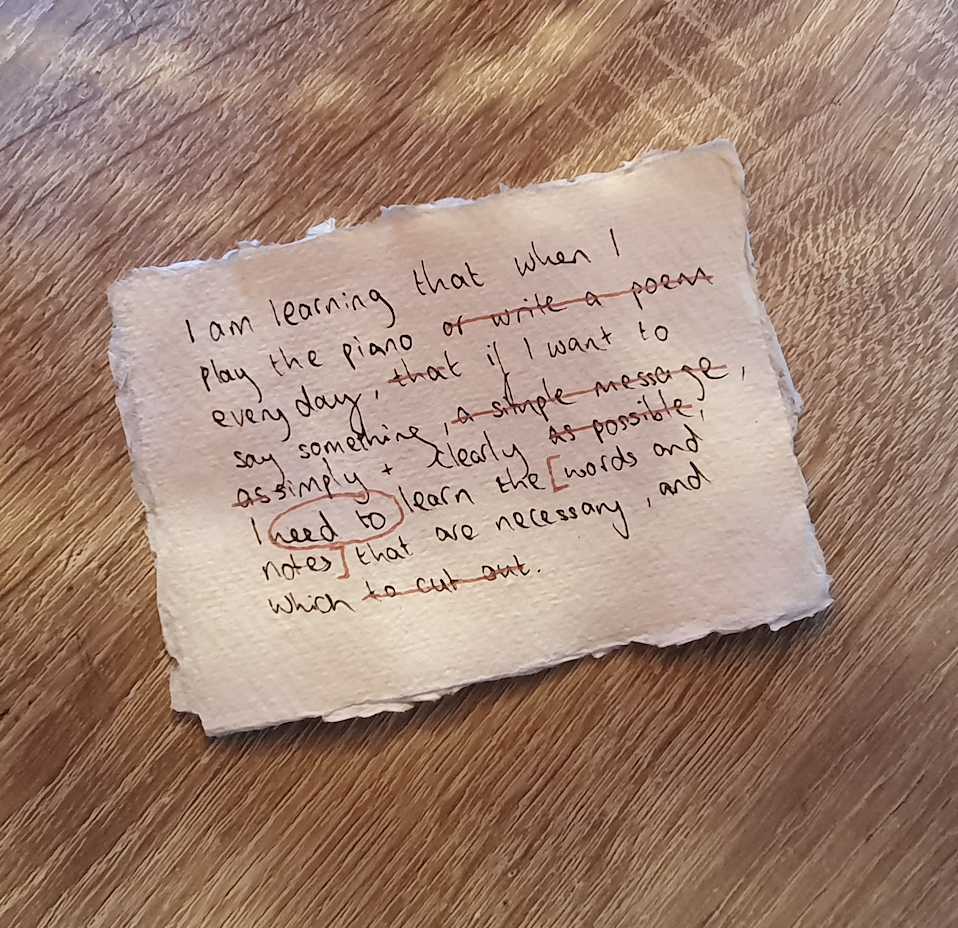 I am learning that when I
play the piano or write a poem
every day, that if I want to
say something, a simple message,
as simply + clearly as possible,
I need to learn the [words and
notes] that are necessary, and
which to cut out.